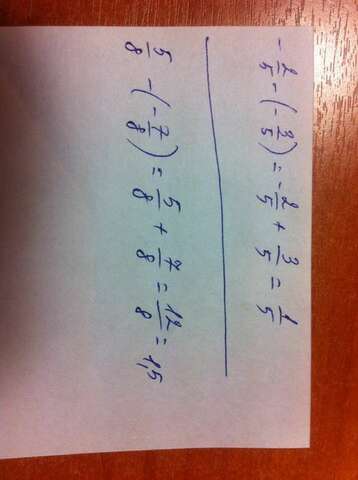 -2/5 - (-3/5) = -2/5 + 3/5 = 1/5
5/8 - (-7/8) = 5/8 + 7/8 = 12/8 = 1,5